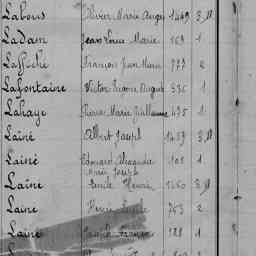 Labous Olivier Marie Auguste 1449 3 M
Ladam Jean Louis Marie 569 1
Laffiché François Jean Marie 777 2
Lafontaine Victor Eugène August 336 1
Lahaye Pierre Marie Guillaume 495 1
Lainé Albert Joseph 1459 3 M
Lainé Edouard Alexandre 101 1
Marie Joseph
Laîné Emile Henri 1260 3 M
Laine 753 2
Lainé 128 1